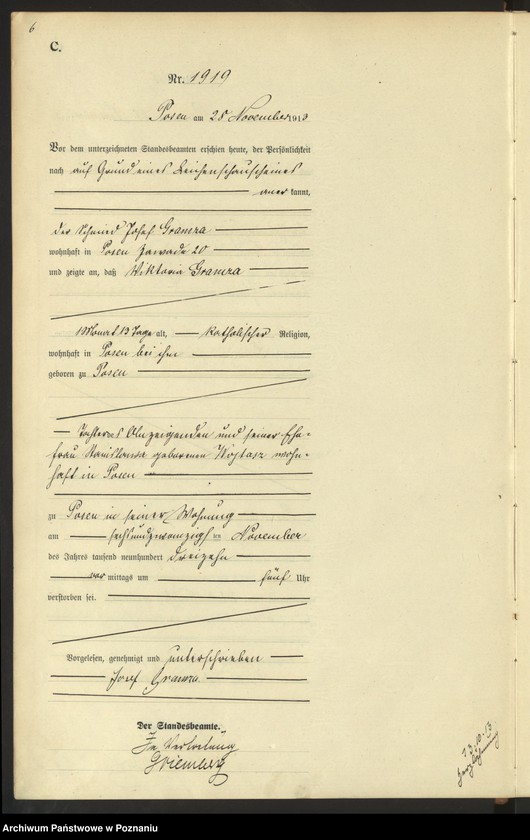 6
C.
Nr. 1919
Posen am 28 November 1913
Vor dem unterzeichneten Standesbeamten erschien heute, der Persönlichkeit
nach auf Grund eines Leichenschauscheines
aner kannt,
der Schmied Josef Gramza
wohnhaft in Posen Zawade 20
und zeigte an, daß Wiktoria Gramza
1 Monat 13 Tage alt, katholischer Religion,
wohnhaft in Posen bei ihm
geboren zu Posen
Tochter des Anzeigenden und seiner Ehe-
frau Stanislawa geborenen Wojtasz wohn-
haft in Posen
zu Posen in seiner Wohnung
am sechsundzwanzigsten November
des Jahres tausend neunhundert dreizehn
vor mittags um fünf Uhr
verstorben sei.
Vorgelesen, genehmigt und unterschrieben
Josef Gramza
Der Standesbeamte.
In Vertretung
13.10.13
Archiwum Państwowe w Poznaniu